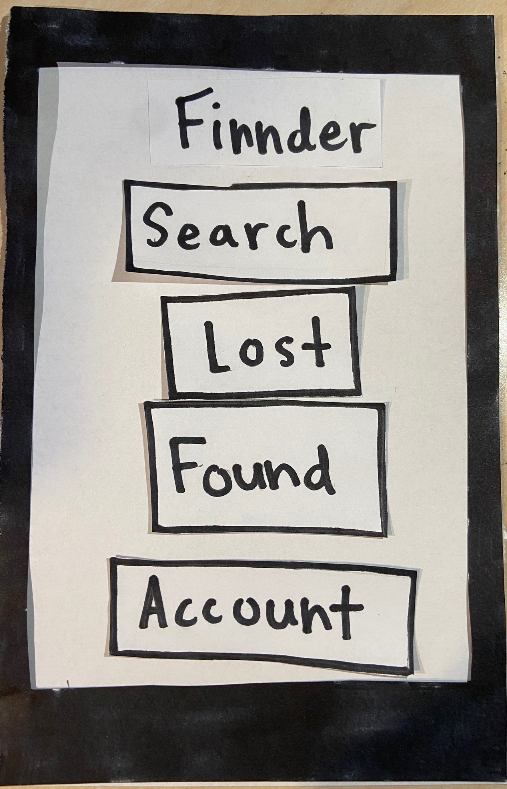 Finnder
Search
Lost
Found
Account